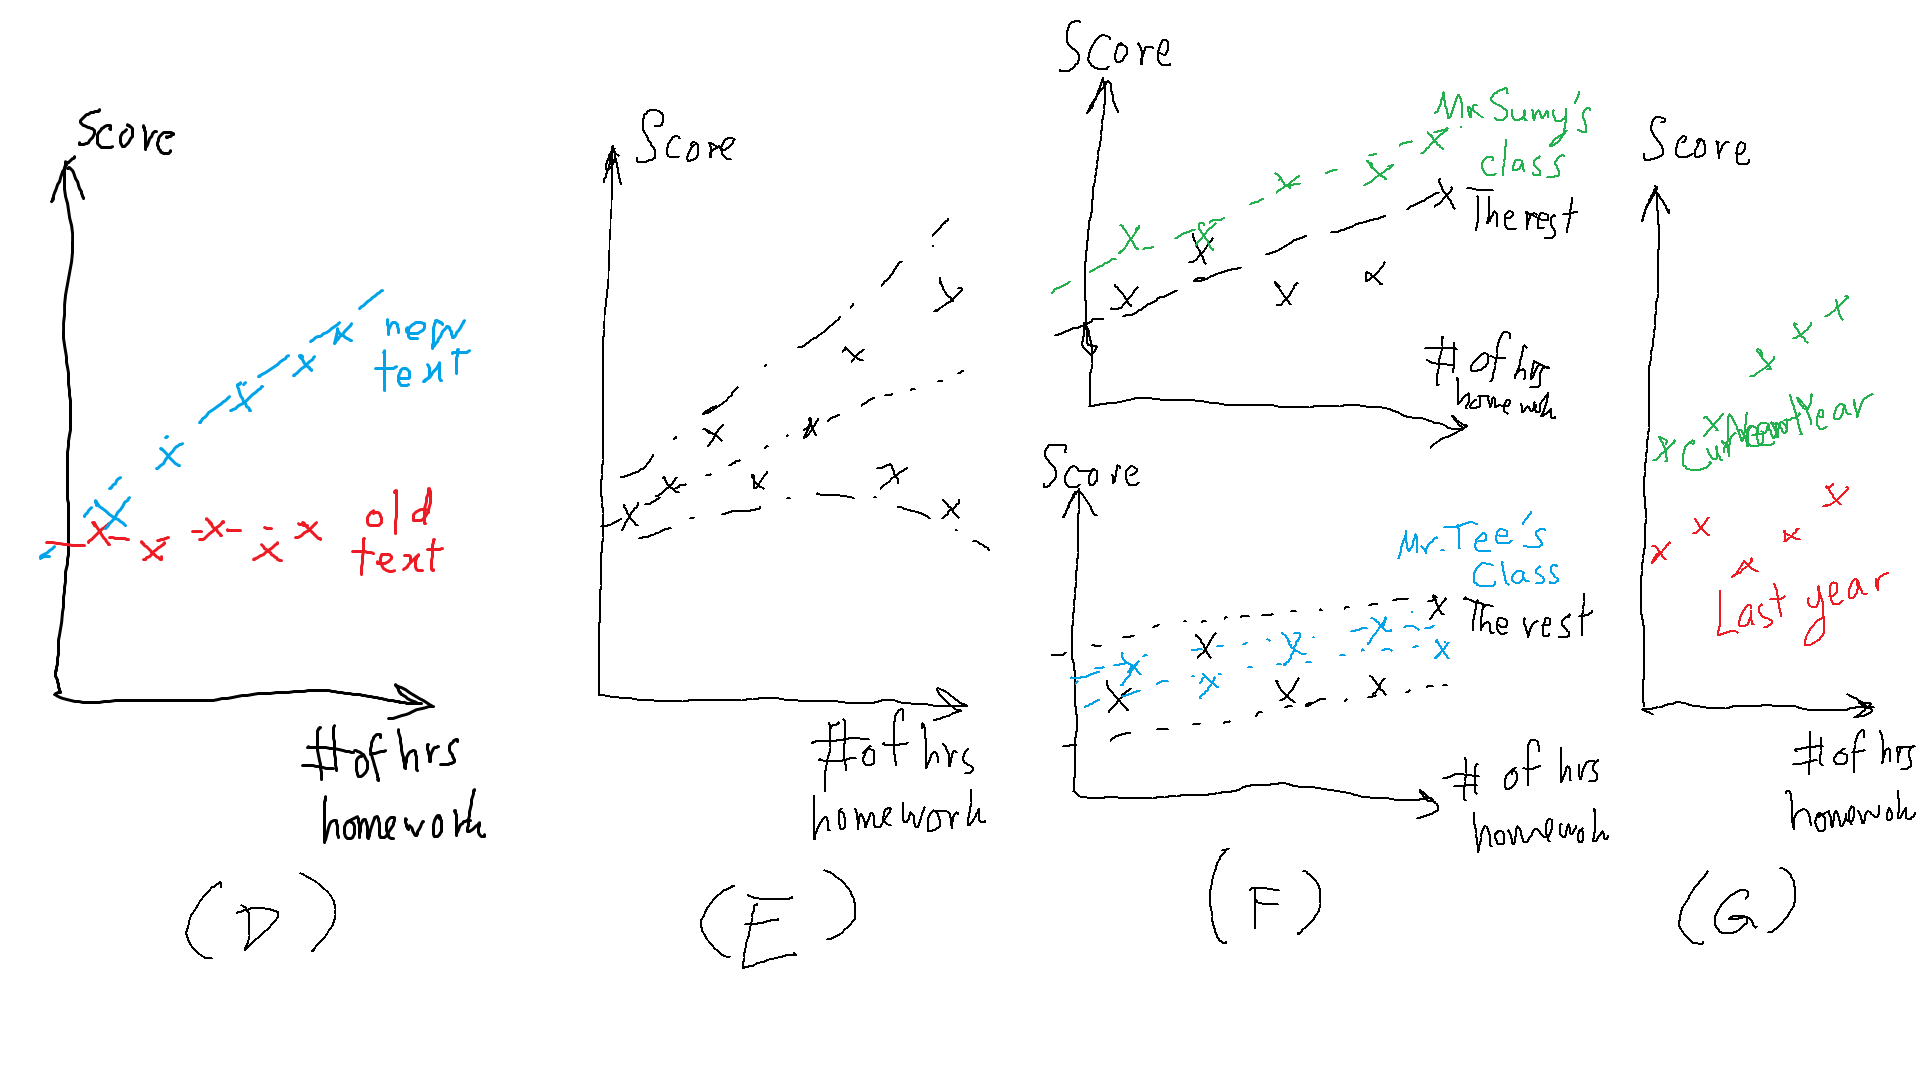 Score
new
text
old
text
# of hrs
homework
(D)
Score
# of hrs
homework
(E)
Score
Mr. Sumy's
class
The rest
# of hrs
homewok
Score
Mr. Tee's
Class
The rest
# of hrs
homewok
(F)
Score
Current Year
Last year
# of hrs
homewok
(G)